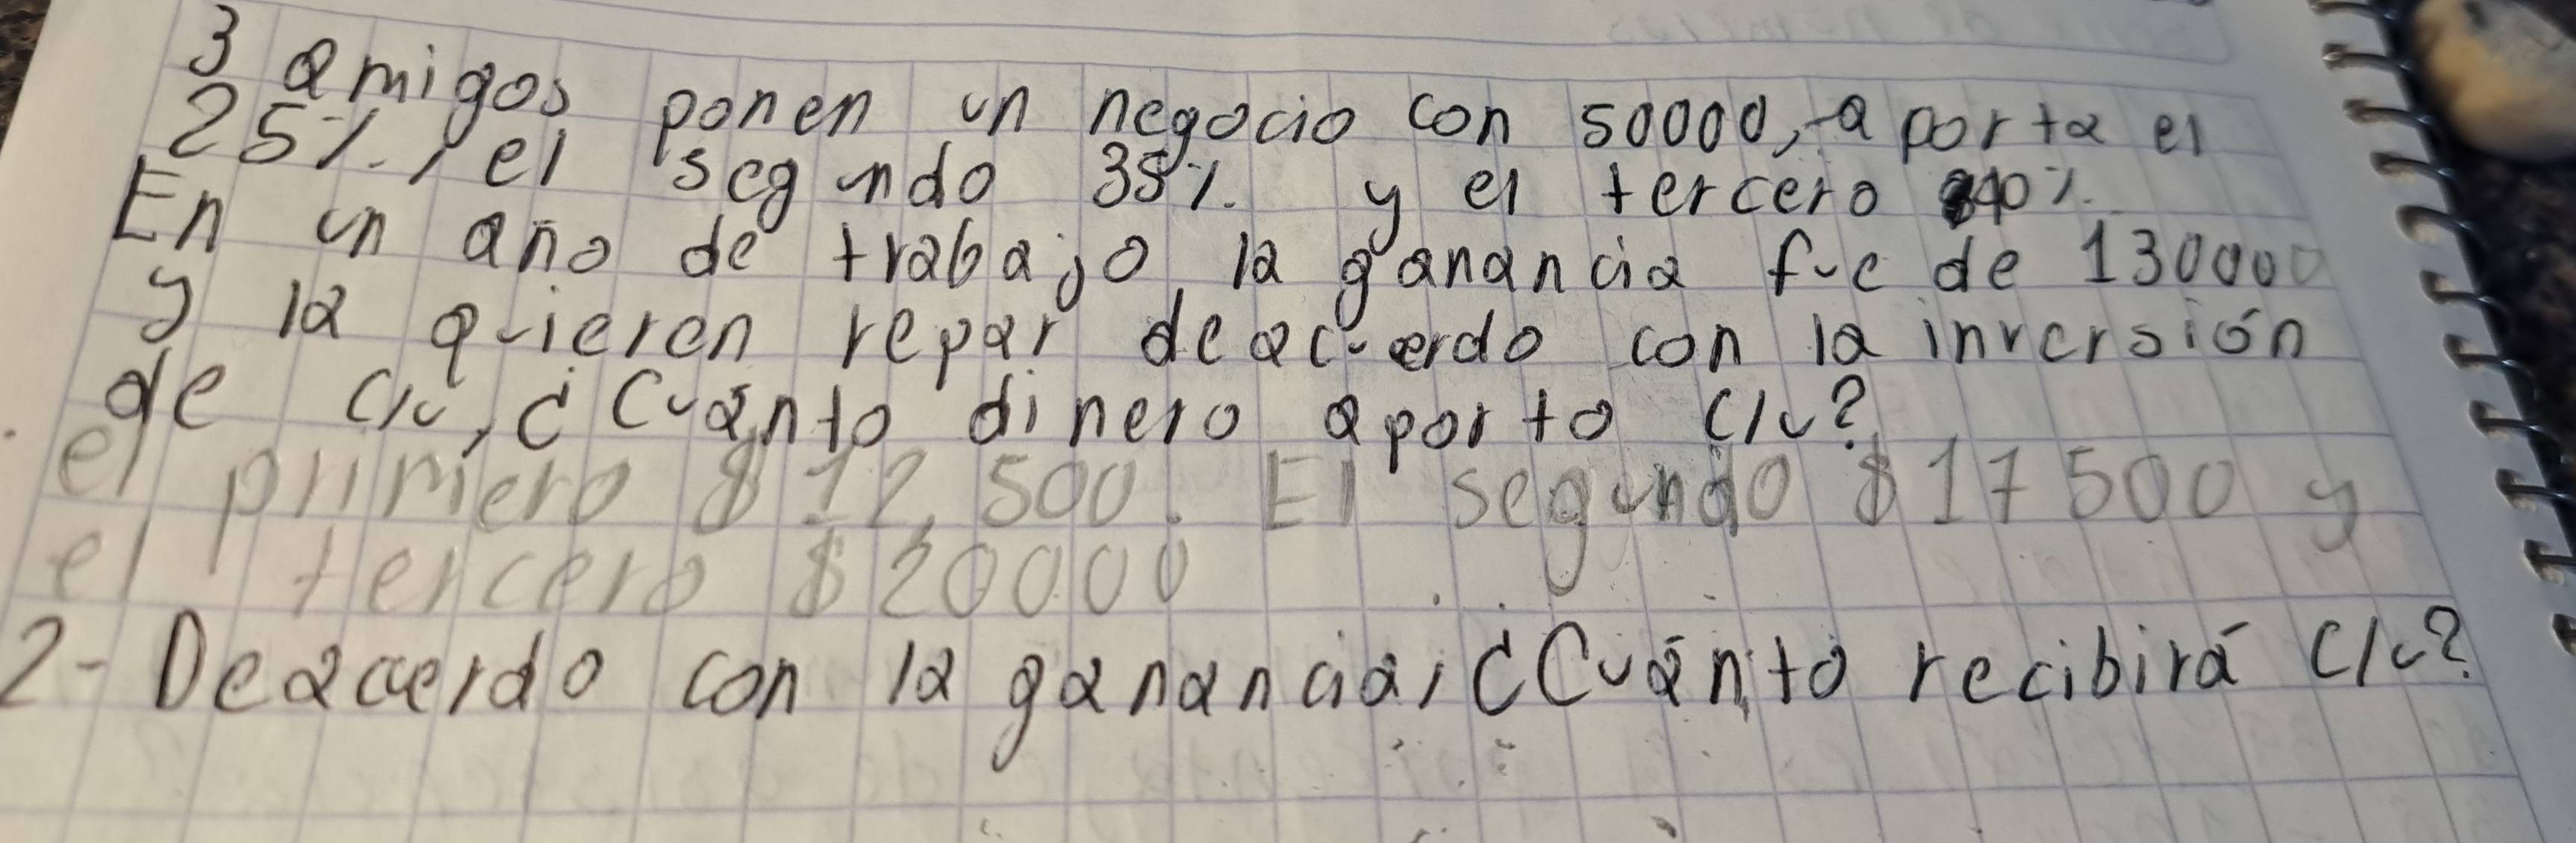 3 amigos ponen un negocio con 50000, aporta el
25%., el segundo 35%. y el tercero 40%.
En un año de trabajo la ganancia fue de 130000
y la quieren repar deacuerdo con la inversión
de c/u, ¿Cuánto dinero aporto c/u?
el primero $12,500. El segundo $17500 y
el tercero $20000
2- Deacuerdo con la ganancia, ¿Cuánto recibirá c/u?